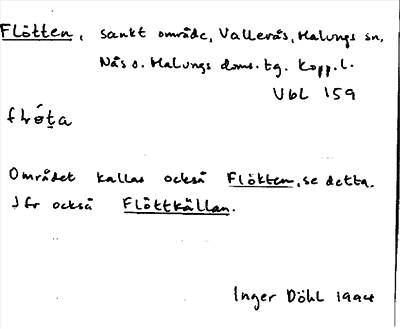 Flötten, sankt område, Vallerås, Malungs sn,
Nås o. Malungs doms.tg. Kopp.l.
Vbl 159
Området kallas också Flökten, se detta.
Jfr också Flöttkällan.
Inger Döhl 1994